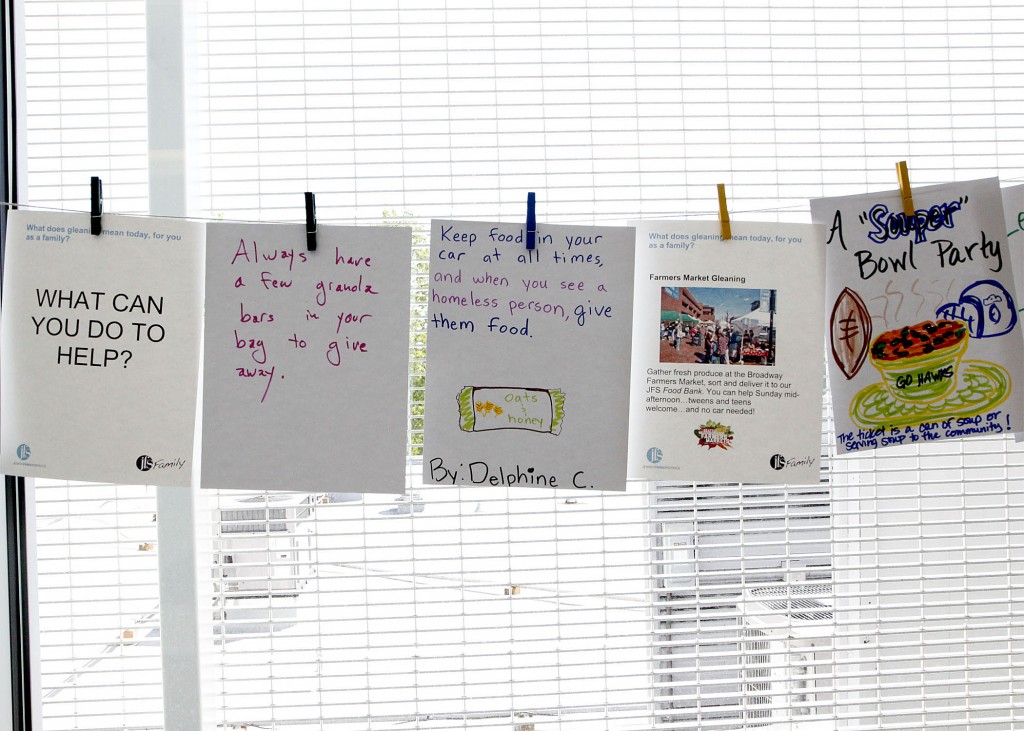 What does gleaning mean today, for you
as a family?
WHAT CAN
YOU DO TO
HELP?
jfs Family
Always have
a few granola
bars in your
bag to give
away.
Keep food in your
car at all times,
and when you see a
homeless person, give
them food.
oats
&
honey
By: Delphine C.
What does gleaning mean today, for you
as a family?
Farmers Market Gleaning
Gather fresh produce at the Broadway
Farmers Market, sort and deliver it to our
JFS Food Bank. You can help Sunday mid-
afternoon…tweens and teens
welcome…and no car needed!
jfs Family
A "Souper"
Bowl Party
GO HAWKS
The ticket is a can of soup or
serving soup to the community!